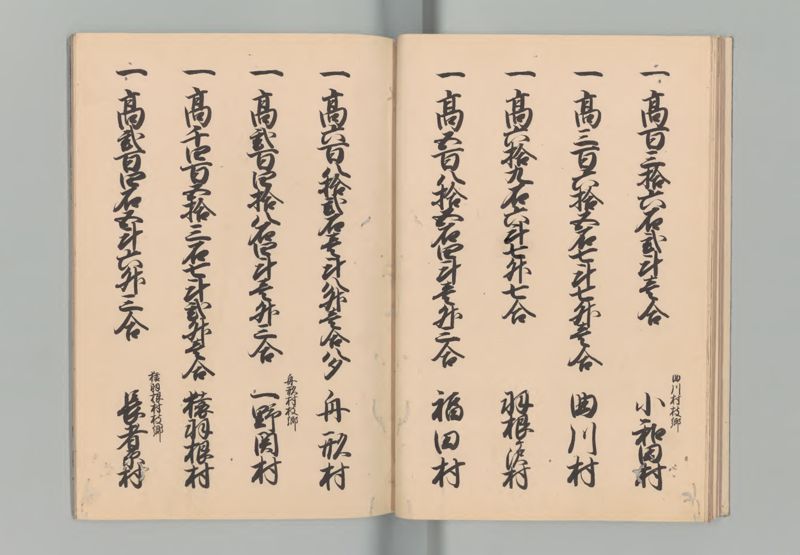 一高百三拾六石弐斗壱合
曲川村枝郷
小和田村
一高三百六拾五石七斗七升壱合
曲川村
一高六拾九石六斗七升七合
羽根沢村
一高五百八拾五石四斗壱升二合
福田村
一高六百八拾弐石壱斗八升壱合八夕
舟形村
一高弐百四拾八石四斗壱升三合
舟形村枝郷
一野関村
一高千四百五拾三石七斗弐升壱合
猿羽根村
一高弐百四石五斗六升三合
猿羽根村枝郷
長者原村